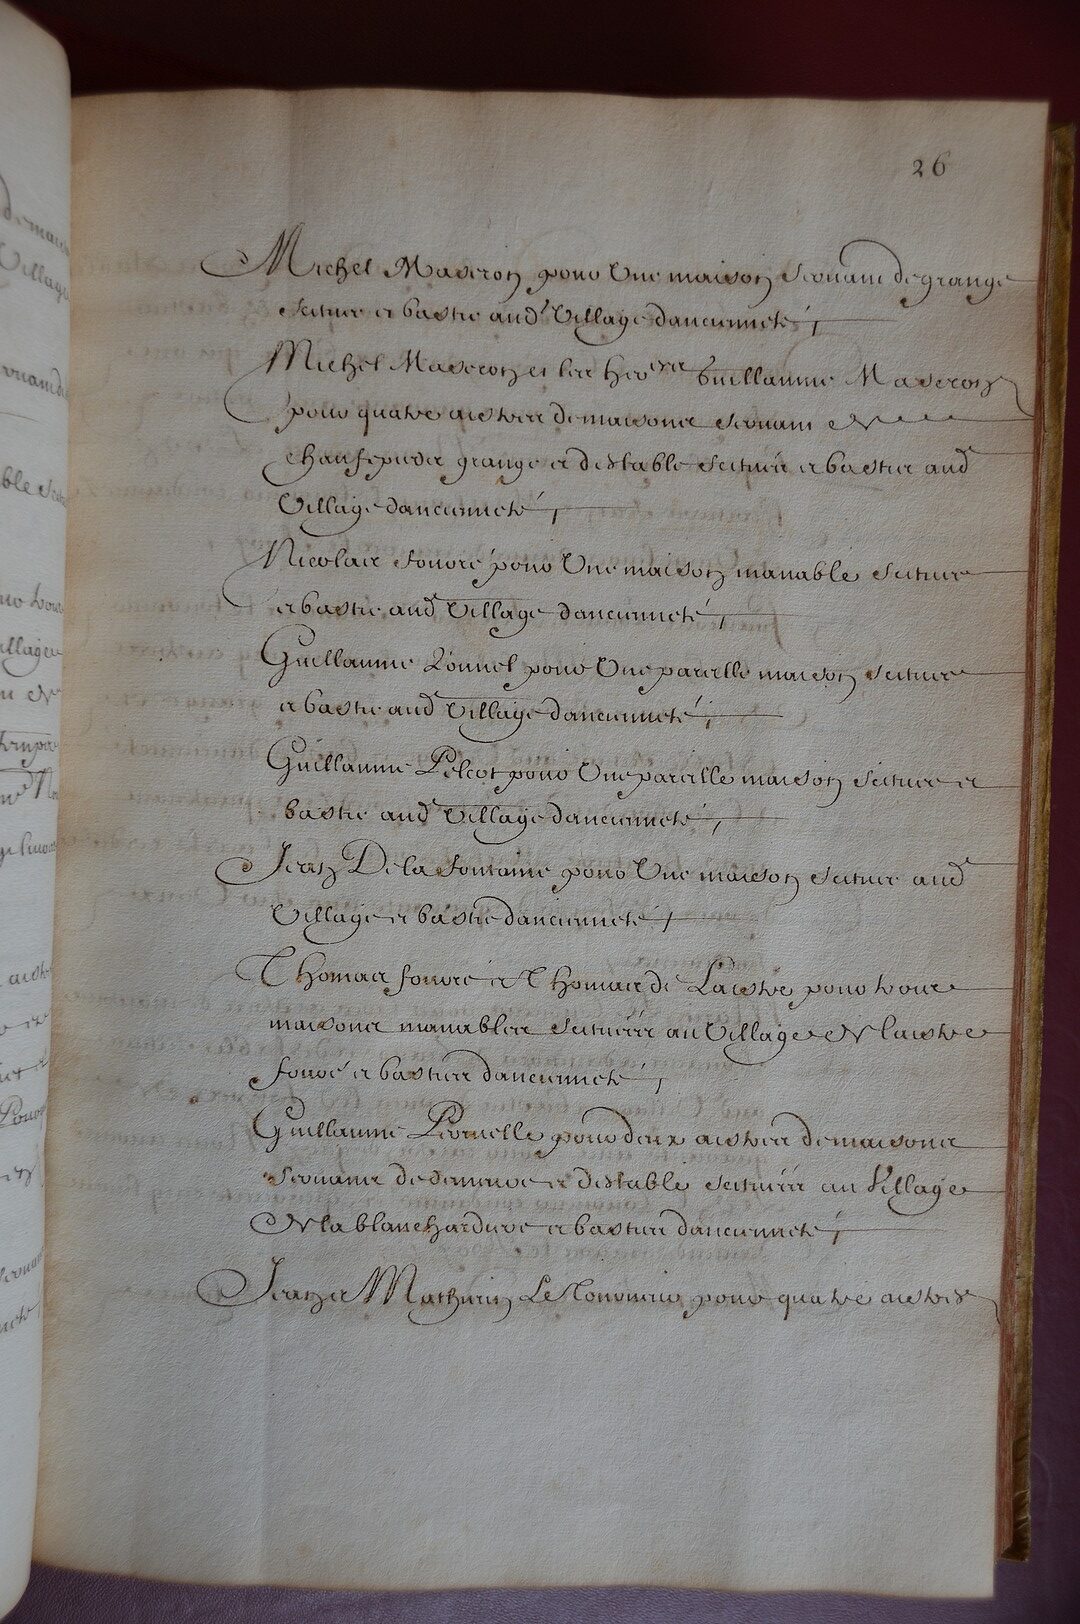 26
Michel Maseron pour Une maison servant de grange
scituee et bastie aud.t Village dancienneté,
Michel Maseron et les Her.ers Guillaume Maseron
pour quatre aistres de maisons servant de
chaufepieds grange et destable scituéés et basties aud
Village dancienneté,
Nicolas fouré pour Une maison manable scituee
et bastie aud Village dancienneté,
Guillaume pour Une pareille maison scituee
et bastie aud Village dancienneté,
Guillaume Pelcot pour Une pareille maison scituee et
bastie aud Village dancienneté,
Jean De la fontaine pour Une maison scituee aud
Village et bastie dancienneté,
Thomas fouré et Thomas de Laistre pour trois
maisons manables scituéés au Village de laistre
fouré et basties dancienneté,
Guillaume pour deux aistres de maisons
servans de demeure et destable scituéés au Village
de la blanchardiere et basties dancienneté,
Jean et Mathurin pour quatre aistres